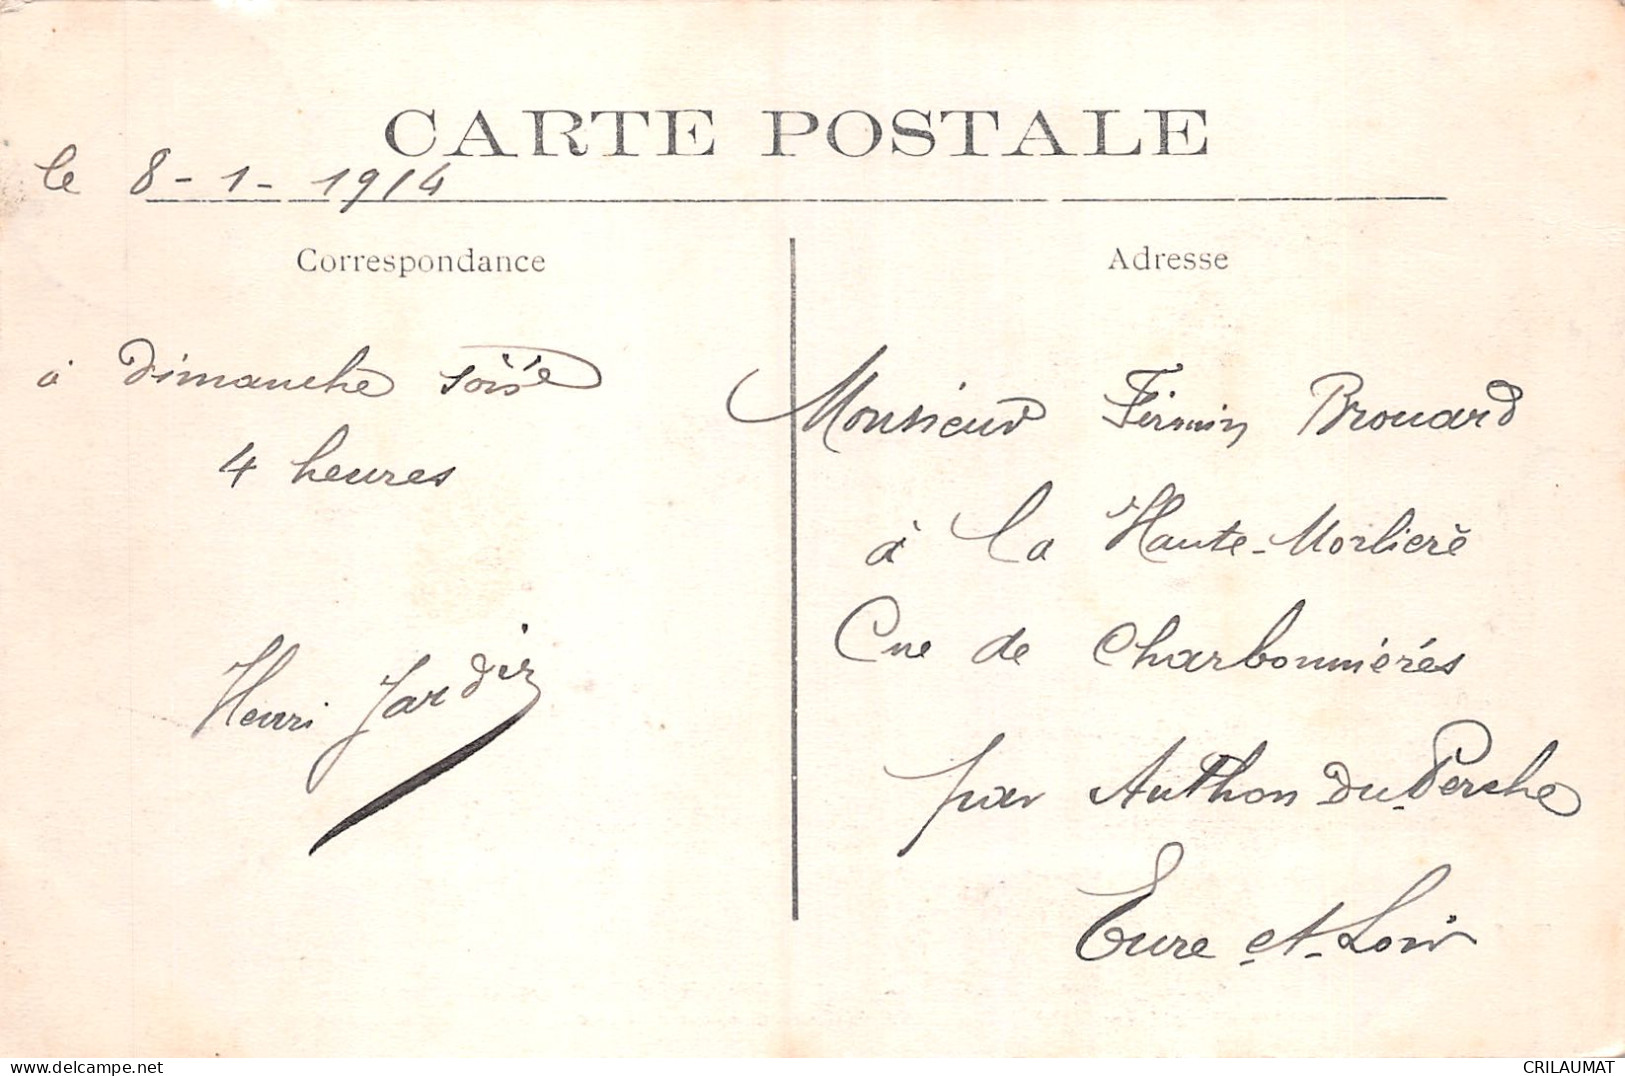 CARTE POSTALE
le 8-1-1914
Correspondance
à dimanche
4 heures
Henri Jardin
Adresse
Monsieur Firmin Brouard
à La Haute-Morlierè
Cne de Charbonniérés
par Authon Du-Perche
Eure et-Loir
delcampe.net
CRILAUMAT